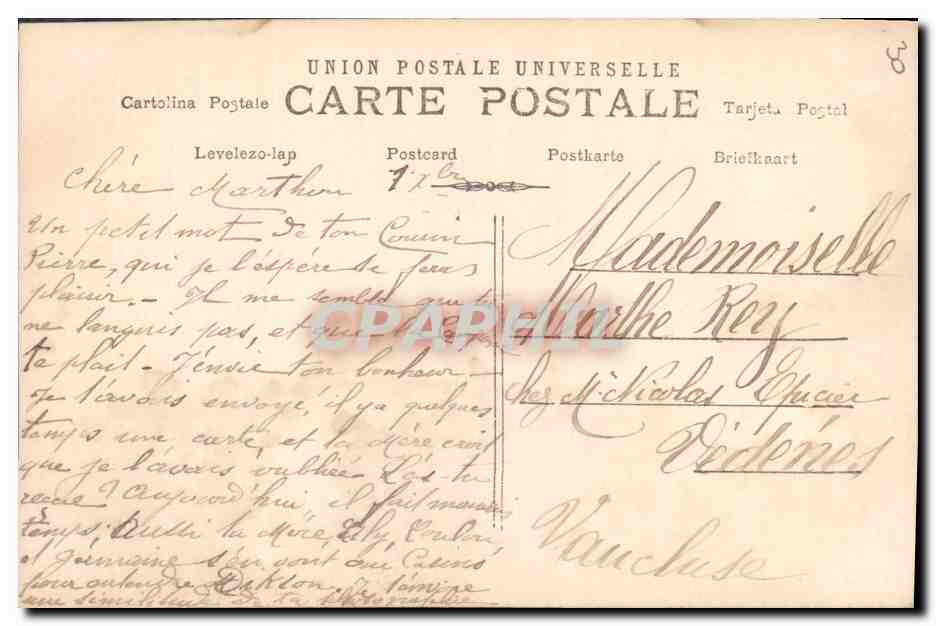 30
UNION POSTALE UNIVERSELLE
Cartolina Postale CARTE POSTALE Tarjeta Postal
Levelezo-lap Postcard Postkarte Briefkaart
Chére Marthon 1 Xbre
Un petit mot de ton Cousin
Pierre, qui je l'éspére te fera
plaisir. - Il me semble que tu
ne languis pas, et que
te plait - J'envie ton bonheur -
Je t'avais envoyé, il y a quelques
temps une carte, et ta Mére croit
que je t'avais oubliée L'as-tu
recue ? Aujourd'hui, il fait mauvais
temps, Aussi ta Mére, Toulon
et Germaine s'en vont au Casino
pour entendre
une similitude de ta photographie
Mademoiselle
Marthe Rey
chez Mr Nicolas Epicier
Védénes
Vaucluse
CPAPHIL